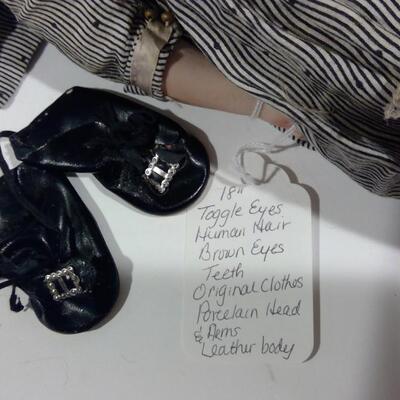 18"
Toggle Eyes
Human Hair
Brown Eyes
Teeth
Original Clothes
Porcelain Head
& Arms
Leather body